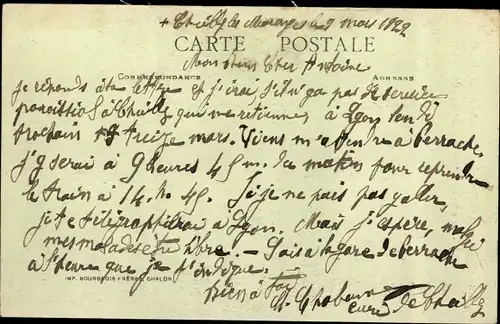 + Cheilly les Maranges le 9 mars 1922
CARTE POSTALE
Mon bien cher Antoine
CORRESPONDANCE ADRESSE
je réponds à ta lettre et j'irai, s'il n'y a pas de service
paroissial à Cheilly qui me retienne, à Lyon lundi
prochain treize mars. Viens m'attendre à Perrache,
j'y serai à 9 heures 45 m. du matin pour reprendre
le train à 14 h. 45. Si je ne puis pas y aller,
je te télégraphierai à Lyon. Mais j'espère, malgré
mes malades être libre. — Sois à la gare de Perrache
à l'heure que je t'indique.
IMP. BOURGEOIS FRÈRES, CHALON
Bien à toi
curé de Cheilly